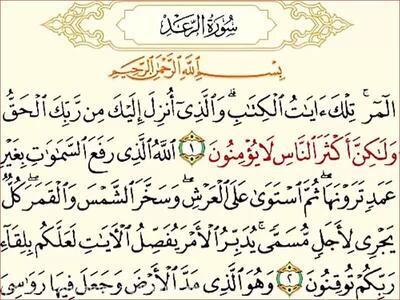 سُورَةُ الرَّعْدِ
بِسْمِ اللَّهِ الرَّحْمَٰنِ الرَّحِيمِ
الٓمٓر ۚ تِلْكَ ءَايَٰتُ الْكِتَٰبِ ۗ وَالَّذِىٓ أُنزِلَ إِلَيْكَ مِن رَّبِّكَ الْحَقُّ
وَلَٰكِنَّ أَكْثَرَ النَّاسِ لَا يُؤْمِنُونَ ١ اللَّهُ الَّذِى رَفَعَ السَّمَٰوَٰتِ بِغَيْرِ
عَمَدٍ تَرَوْنَهَا ۖ ثُمَّ اسْتَوَىٰ عَلَى الْعَرْشِ ۖ وَسَخَّرَ الشَّمْسَ وَالْقَمَرَ ۖ كُلٌّ
يَجْرِى لِأَجَلٍ مُّسَمًّى ۚ يُدَبِّرُ الْأَمْرَ يُفَصِّلُ الْءَايَٰتِ لَعَلَّكُم بِلِقَآءِ
رَبِّكُمْ تُوقِنُونَ ٢ وَهُوَ الَّذِى مَدَّ الْأَرْضَ وَجَعَلَ فِيهَا رَوَٰسِىَ